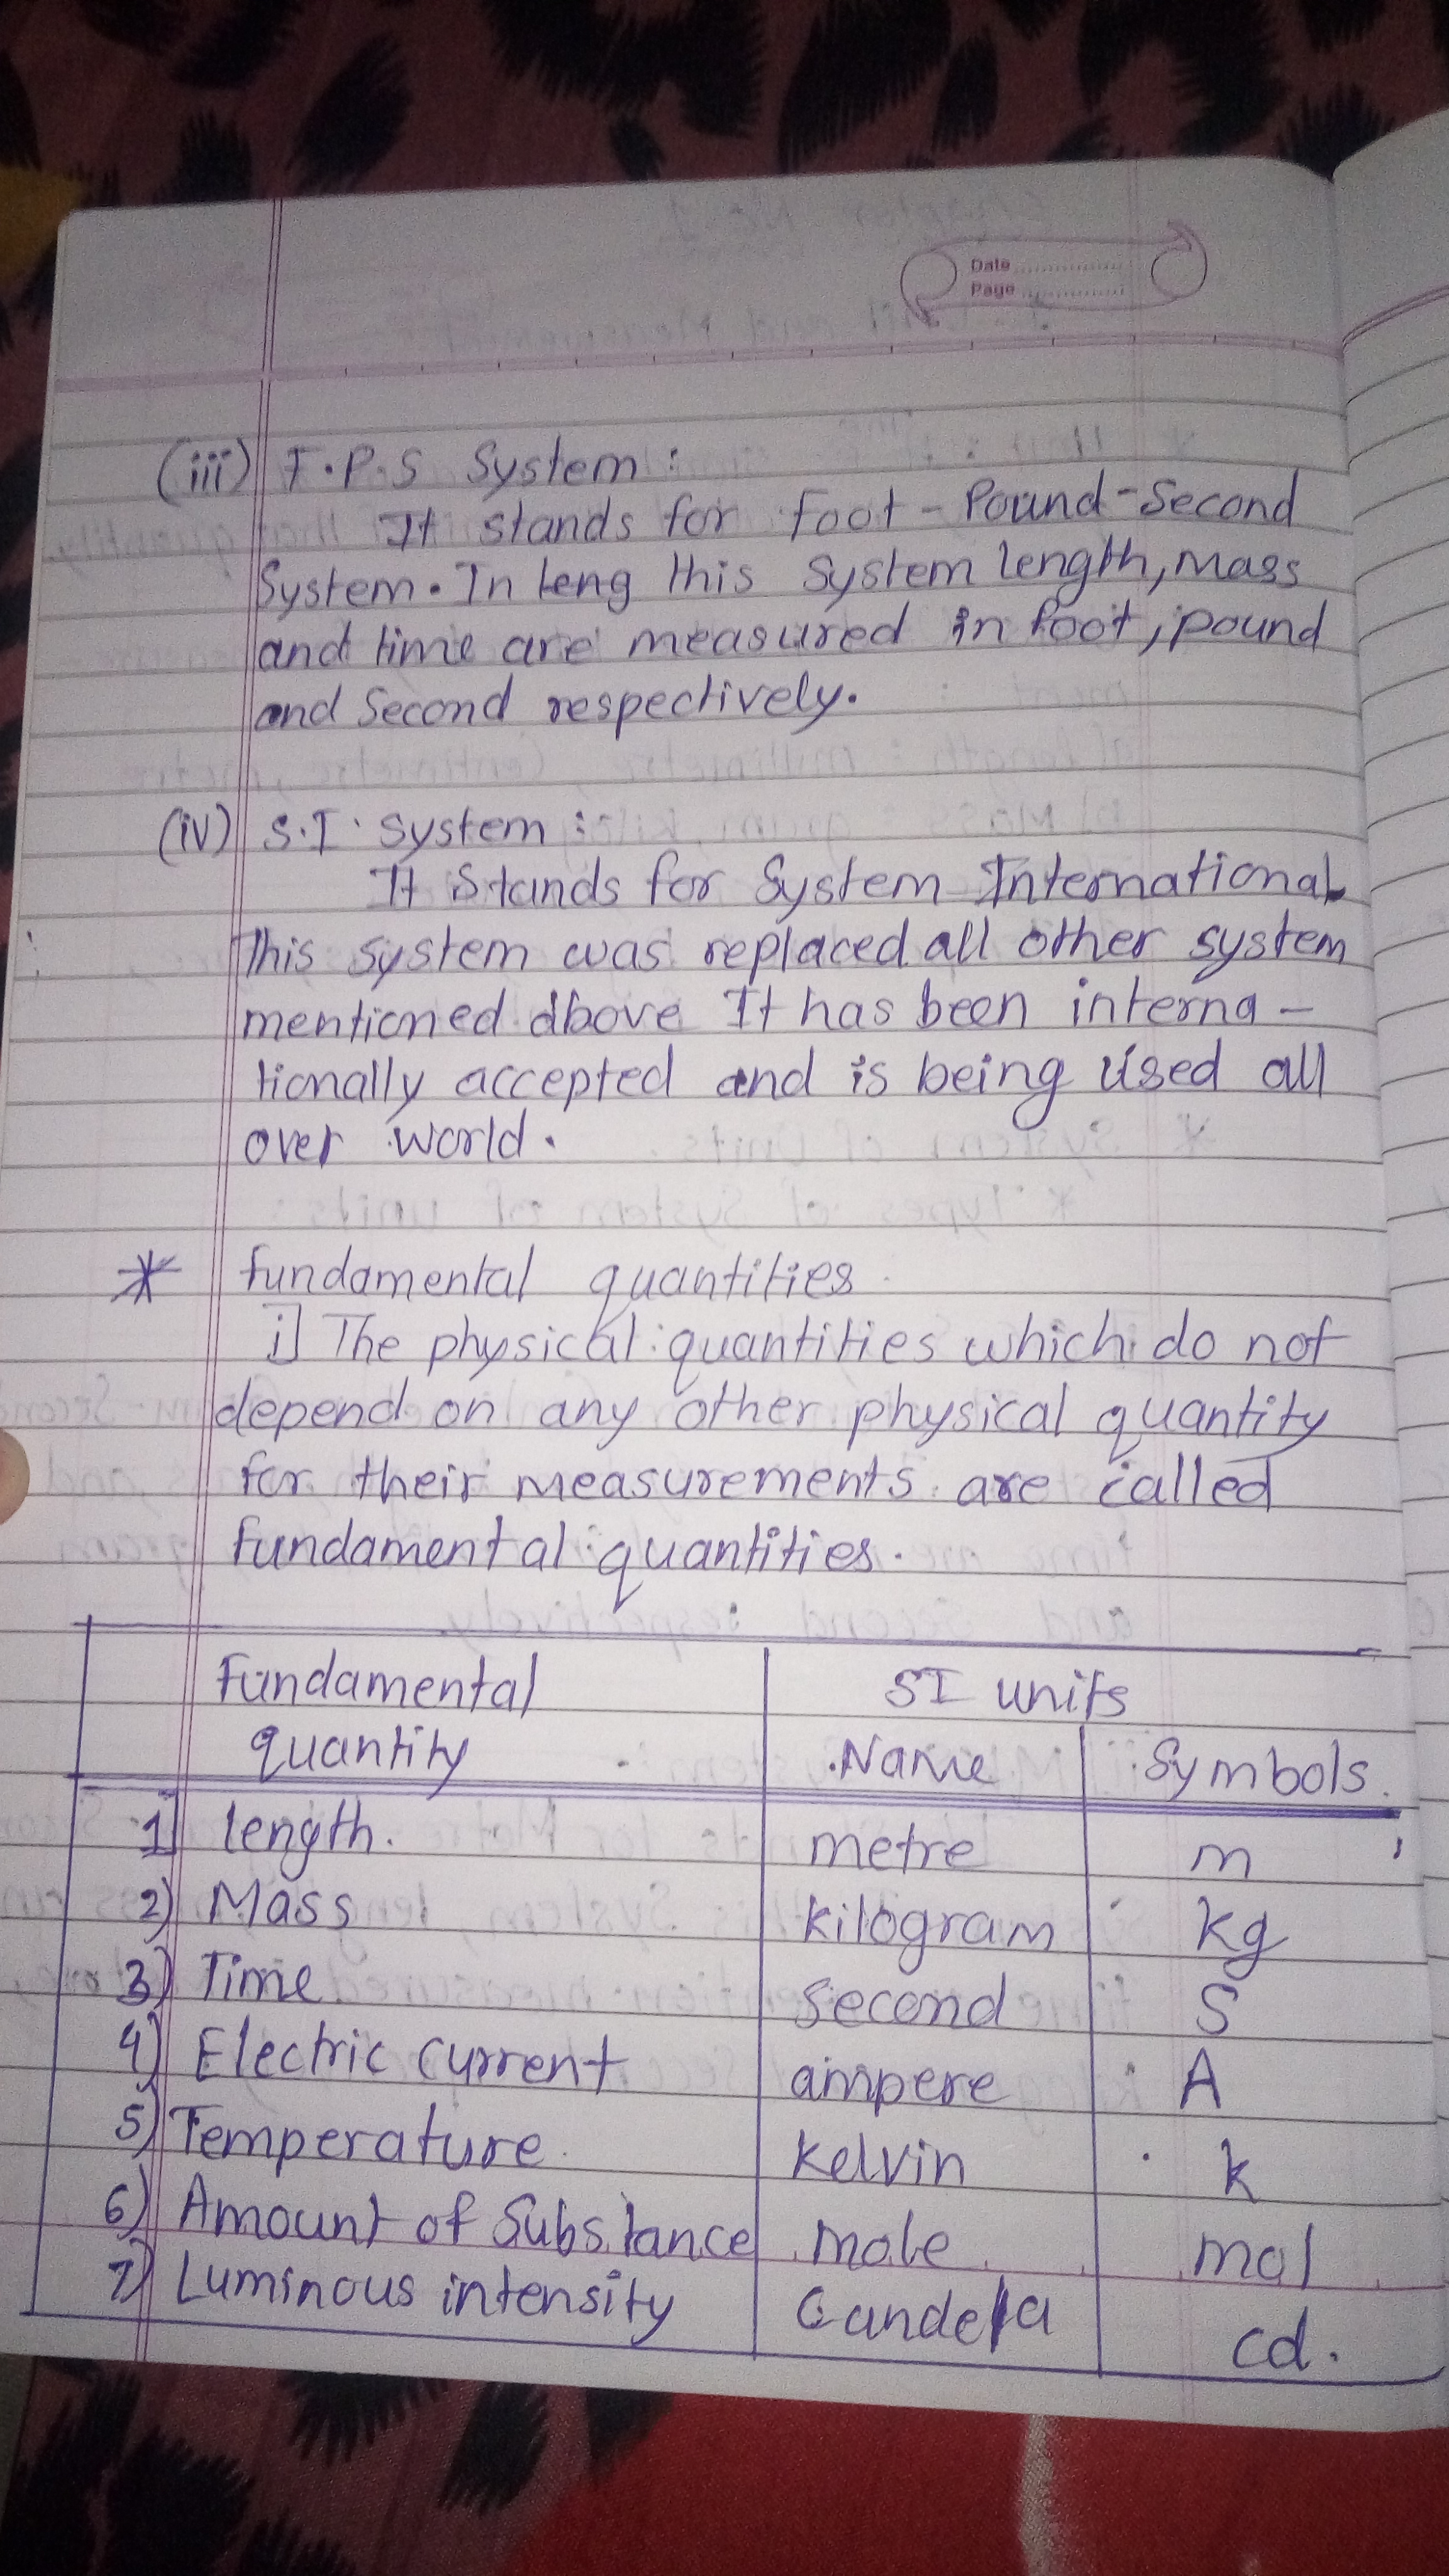 Date
Page
(iii) F.P.S System :
It stands for foot - Pound - Second
System. In leng this system length, mass
and time are measured in foot, pound
and Second respectively.
(iv) S.I. System :
It Stands for System International
This system was replaced all other system
mentioned above It has been interna -
tionally accepted and is being used all
over world.
* fundamental quantities
i] The physical quantities which do not
depend on any other physical quantity
for their measurements are called
fundamental quantities.
Fundamental quantity
SI units
Name Symbols
1] length. metre m
2) Mass kilogram kg
3) Time second S
4) Electric current ampere A
5) Temperature kelvin k
6) Amount of Substance mole mol
7) Luminous intensity Candela cd.